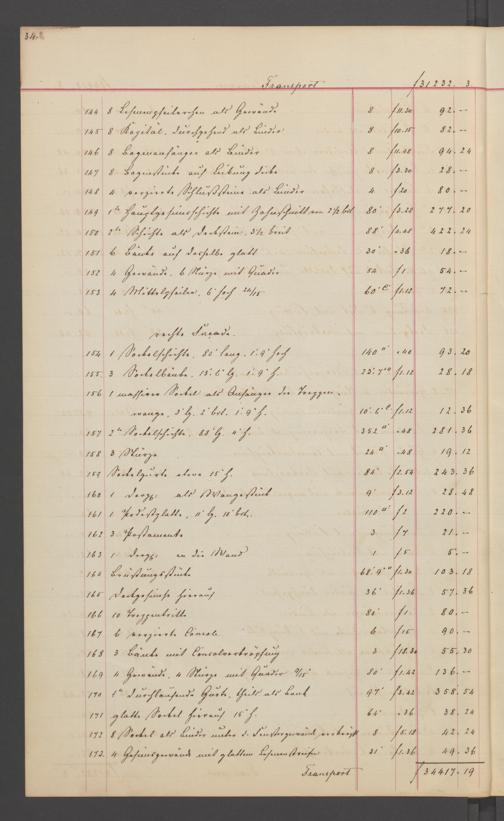 342
Transport f 31232. 3
144 8 Lesenenpfeilerchen als Gewände 8 f 11.30 92.–
145 8 Kapital. durchgehend als Binder 8 f 10.15 82.–
146 8 Bogenanfänger als Binder 8 f 11.48 94.24
147 8 Bogenstücke auf 8 f 3.30 28.–
148 4 verzierte Schlußsteine als Binder 4 f 20 80.–
149 1te Hauptgesimsschichte mit Zahnschnitten 2½ brt 80' f 3.28 277.20
150 2te Schichte als Deckstein, 3½ breit 88' f 4.48 422.24
151 6 Bänke auf derselbe glatt 30' .36 18.–
152 4 Gewände, 6 Stürze mit Quader 54 f 1 54.–
153 4 Mittelpfeiler, 6' hoch 60' f 1.12 72.–
rechte Façade.
154 1 Sockelschichte, 80' lang, 1'.9" hoch 140 .40 93.20
155 3 Sockelbänke, 15'.6" lg. 1'.9" h. 23'.7" f 1.12 28.18
156 1 massiver Sockel als Anfänger der Treppen-
wange, 3' lg. 2' brt. 1'.9" h. 10'.6" f 1.12 12.36
157 2te Sockelschichte, 88' lg. 4' h. 352 .48 281.36
158 3 Stürze 24 .48 19.12
159 Sockelgurte 15" h. 84' f 2.54 243.36
160 1 dergl. als Wangenstück 9' f 3.12 28.48
161 1 Podestplatte, 11' lg. 10' brt. 110 f 2 220.–
162 3 Postamente 3 f 7 21.–
163 1 dergl. an die Wand 1 f 5 5.–
164 Brüstungsstücke 68'.9" f 1.30 103.18
165 Deckgesimse hierauf 36' f 1.36 57.36
166 10 Treppentritte 80' f 1 80.–
167 6 verzierte Consols 6 f 15 90.–
168 3 Bänke mit Consolverkröpfung 3 f 18.30 55.30
169 4 Gewände, 4 Stürze mit Quader 9/15 80' f 1.42 136.–
170 1te durchlaufende Gurte, theils als Bank 97' f 3.42 358.54
171 glatte Sockel hierauf 15" h. 64' .36 38.24
172 8 Sockel als Binder unter d. Fenstergewände 8 f 5.18 42.24
173 4 Gesimsgewände mit glattem 31' f 1.36 49.36
Transport f 34417.19